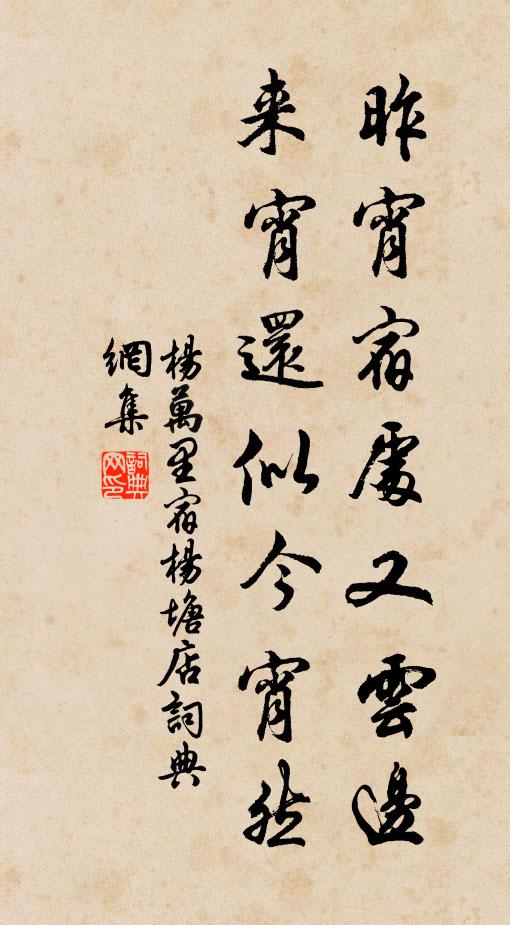 昨宵宿處又雲邊
来宵還似今宵然
楊萬里宿楊塘店詞典
網集
詞典
网印